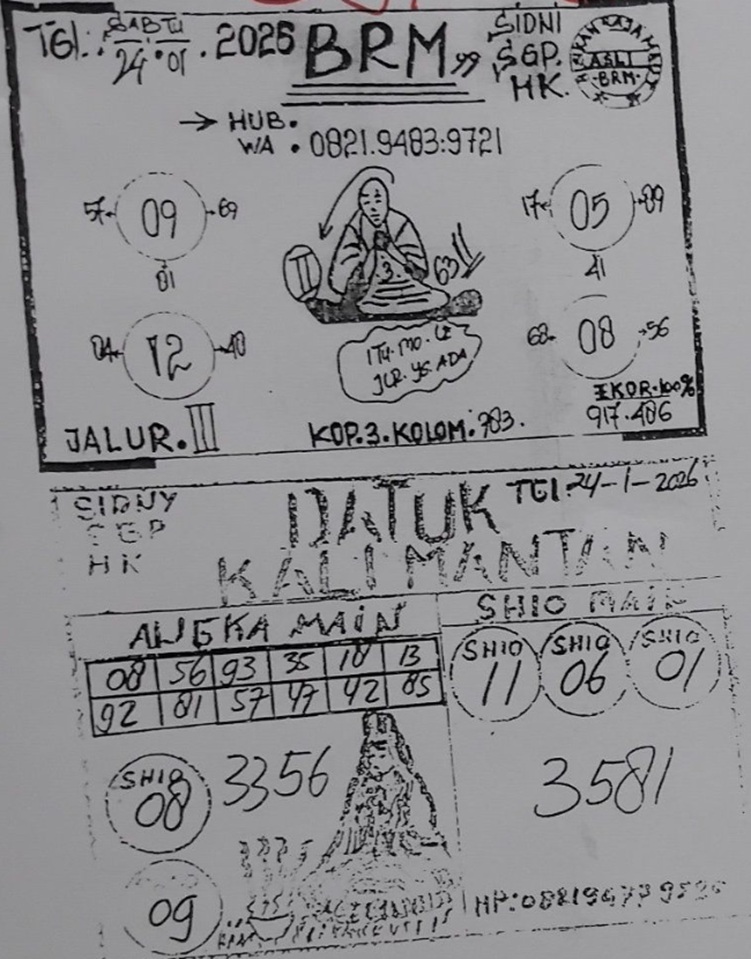 TGl. SABTU
24.01.2026
BRM 99
SIDNI
SGP.
HK.
ASLI
BRM
→ HUB.
WA . 0821.9483.9721
57 09 69
01
17 05 89
41
II
3
63
04 12 40
68 08 56
ITU.MO.LE
JLR.YG.ADA
EKOR.100%
917.486
JALUR.III
KOP.3.KOLOM.783.
SIDNY
SGP
HK
DATUK
KALIMANTAN
TGl.24-1-2026
ANGKA MAIN
08 56 93 35 18 13
92 81 57 47 42 85
SHIO MAIN
SHIO
11
SHIO
06
SHIO
01
SHIO
08
3356
3581
09